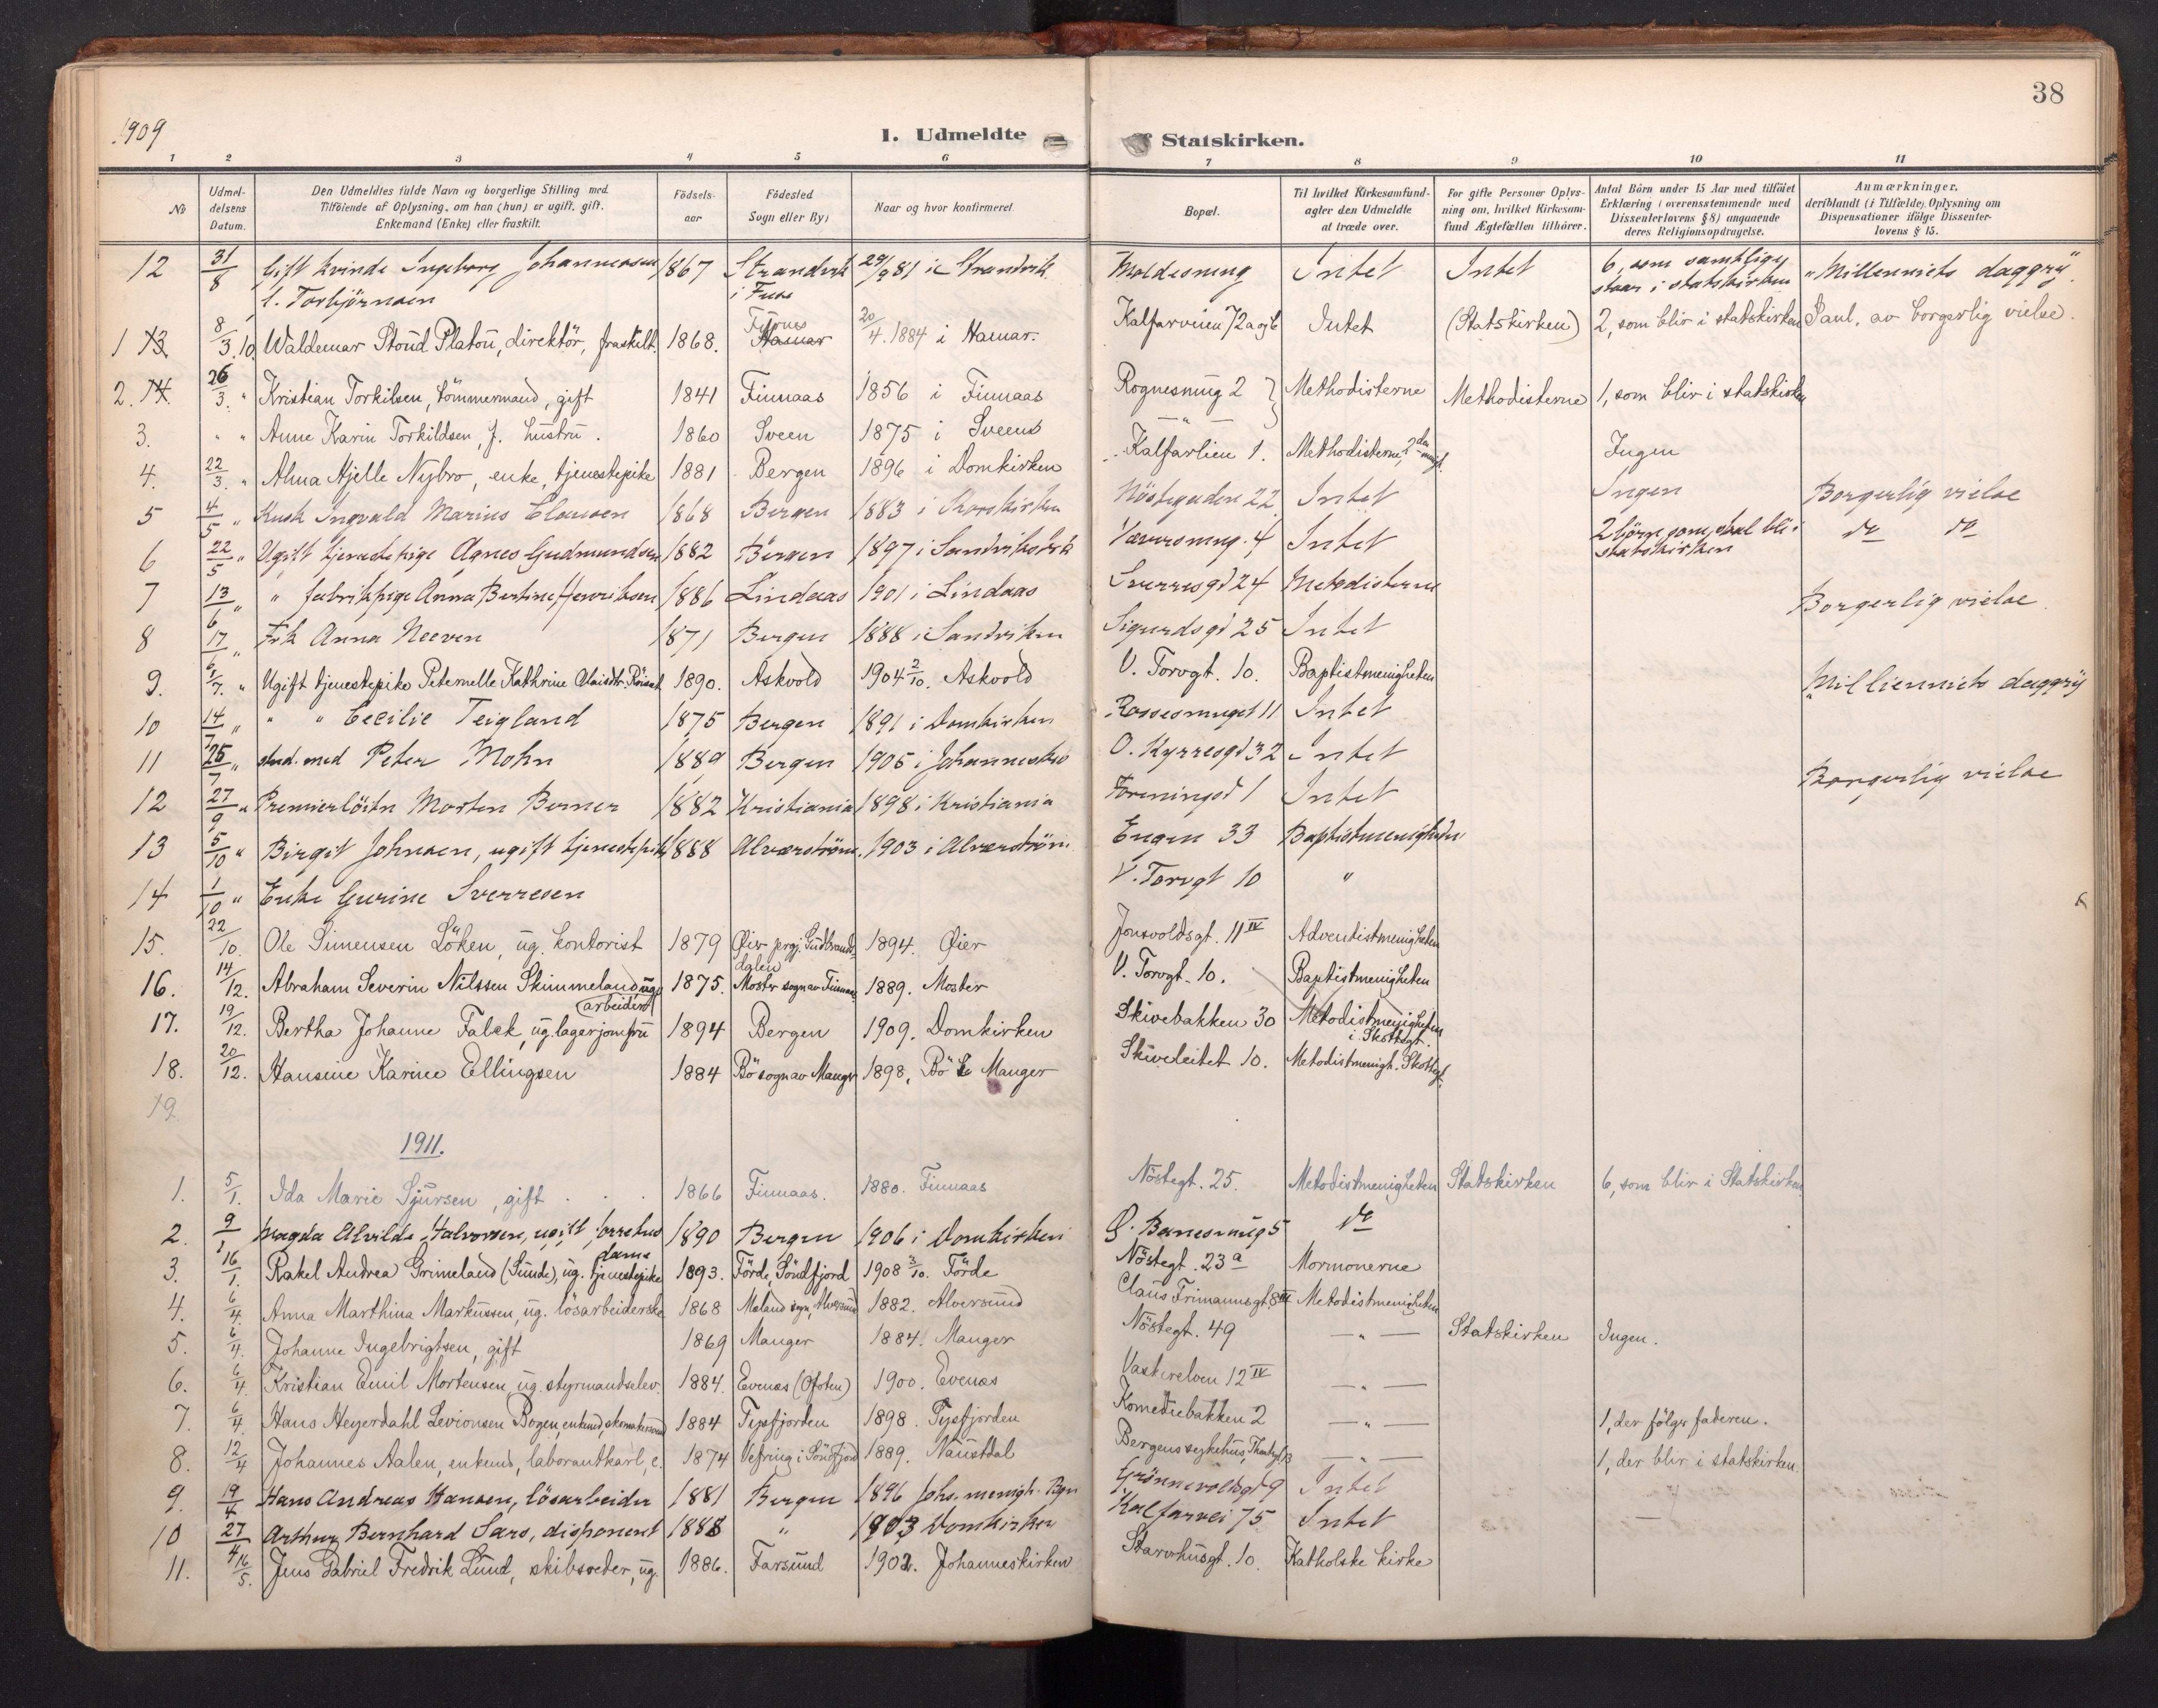 38
1909
1. Udmeldte af Statskirken.
1 2 3 4 5 6 7 8 9 10 11
No
Udmeldelsens Datum.
Den Udmeldtes fulde Navn og borgerlige Stilling med Tilföiende af Oplysning, om han (hun) er ugift, gift, Enkemand (Enke) eller fraskilt.
Födselsaar
Födested Sogn eller By)
Naar og hvor konfirmeret.
Bopæl.
Til hvilket Kirkesamfund agter den Udmeldte at træde over.
For gifte Personer Oplysning om, hvilket Kirkesamfund Ægtefællen tilhörer.
Antal Börn under 15 Aar med tilföiet Erklæring (overensstemmende med Dissenterlovens § 8) angaaende deres Religionsopdragelse.
Anmærkninger, deriblandt (i Tilfælde) Oplysning om Dispensationer ifölge Dissenterlovens § 15.
12 31/8 Gift kvinde Ingeborg Johannessen 1867 Strandvik 29/9 81 i Strandvik Moldesmug Intet Intet 6, som samtlige "Millenniets daggry".
f. Torbjörnsen i Fuse staar i statskirken
1 13 8/3.10 Waldemar Stoud Platou, direktör, fraskilt. 1868. Hamar 20/4. 1884 i Hamar. Kalfarveien 72 a og b Intet (Statskirken) 2, som blir i statskirken av borgerlig vielse.
2. 14. 26/3. " Kristian Torkilsen, tömmermand, gift 1841 Finnaas 1856 i Finnaas Rognesmug 2 Methodisterne Methodisterne 1, som blir i statskirken
3. " " Anne Karin Torkildsen, f. hustru. 1860 Sveen 1875 i Sveens — " —
4. 22/3. " Alma Hjelle Nybro, enke, tjenestepike 1881 Bergen 1896 i Domkirken Kalfarlien 1. Methodisterne, 2den menigh. Ingen
5 4/5 " Kusk Ingvald Marius Clausen 1868 Bergen 1883 i Korskirken Nöstegaden 22 Intet Ingen Borgerlig vielse
6 22/5 " Ugift tjenestepige Agnes Gudmundsen 1882 Bergen 1897 i Sandvikskirk 4 Intet 2 börn, som skal bli i statskirken do do
7 13/6 " " fabrikpige Anna Bertine Henriksen 1886 Lindaas 1901 i Lindaas Sverresgd 24 Metodisterne
8 17/6 " Frk Anna Neeven 1871 Bergen 1888 i Sandviken Sigurdsgd 25 Intet Borgerlig vielse
9. 6/7. " Ugift tjenestepike Peternelle Kathrine 1890. Askvold 1904 2/10. Askvold V. Torvgt. 10. Baptistmenigheten
10 14/7 " " " Cecilie Teigland 1875 Bergen 1891 i Domkirken Rossesmuget 11 Intet "Milliennichs daggry
11 25/7 " stud. med Peter Mohn 1889 Bergen 1905 i Johanneskir O. Kyrresgd 32 Intet
12 27/9 " Premierlöitn Morten Berner 1882 Kristiania 1898 i Kristiania Foreningsgd 1 Intet Borgerlig vielse
13 5/10 " Birgit Johnsen, ugift tjenestepik 1888 Alverström. 1903 i Alverström. Engen 33 Baptistmenigheden
14 1/10 " Enke Gurine Sverresen V. Torvgt 10 "
15. 22/10. Ole Simensen Löken, ug. kontorist 1879 Öier prgj. Gudbrandsdalen 1894. Öier Jonsvoldsgt. 11 IV Adventistmenigheten
16. 14/12. Abraham Severin Nilssen Skimmeland, ug. arbeider 1875. Moster sogn av Finnaas 1889. Moster V. Torvgt. 10. Baptistmenigheten
17. 19/12. Bertha Johanne Falck, ug. lagerjomfru 1894 Bergen 1909. Domkirken Skivebakken 30 Metodistmenigheten i Skottegt.
18. 20/12. Hansine Karine Ellingsen 1884 Bö sogn av Manger 1898. Bö i Manger Skivebeitet 10. Metodistmenigh. Skottegt.
19.
1911.
1. 5/1. Ida Marie Sjursen, gift 1866 Finnaas. 1880. Finnaas Nöstegt. 25. Metodistmenigheten Statskirken 6, som blir i Statskirken
2. 9/1 Magda Alvilde Halvorsen, ugift, dame 1890 Bergen 1906 i Domkirken 5 do
3. 16/1. Rakel Andrea Grimeland (Sunde), ug. tjenestepike 1893. Förde, Söndfjord 1908 3/10. Förde Nöstegt. 23 a Mormonerne
4. 6/4. Anna Marthina Markussen, ug. lösarbeiderske 1868 Meland sogn, Alversund 1882. Alversund Claus Frimannsgt. 8 III Metodistmenigheten
5. 6/4. Johanne Ingebrigtsen, gift 1869 Manger 1884. Manger Nöstegt. 49 — " — Statskirken Ingen.
6. 6/4. Kristian Emil Mortensen, ug. styrmandselev. 1884. Evenæs (Ofoten) 1900. Evenæs Vaskerelven 12 IV — " —
7. 6/4. Hans Heyerdahl Levionsen Bogen, enkemd, skomakersvend 1884 Tysfjorden 1898. Tysfjorden Komediebakken 2 — " — 1, der fölger faderen.
8. 12/4 Johannes Aalen, enkemd, laborantkarl, e. 1874 Vefring i Söndfjord 1889. Naustdal Bergens sykehus — " — 1, der blir i statskirken.
9. 19/4 Hans Andreas Hansen, lösarbeider 1881 Bergen 1896 Johs. menigh. Bgn Grönnevoldsgt 9 Intet
10 27/4 Arthur Bernhard Sars, disponent 1888 " 1903 Domkirken Kalfarvei 75 Intet
11. 16/5. Jens Gabriel Fredrik Lund, skibsreder, ug. 1886. Farsund 1902. Johanneskirken Starvhusgt. 10. Katholske kirke